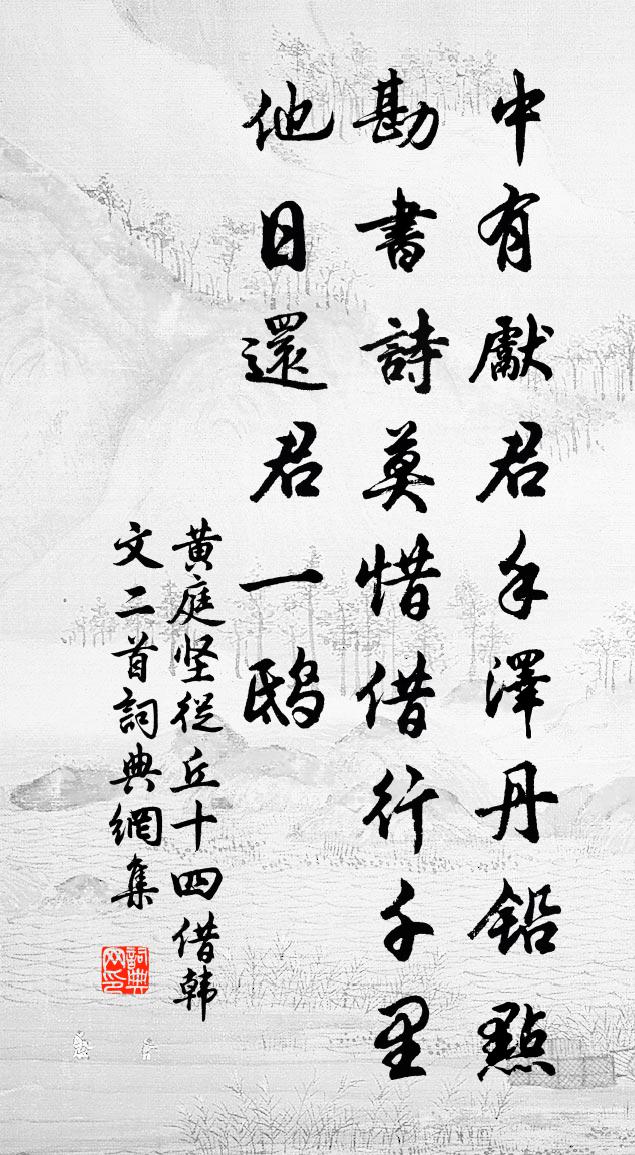 中有獻君手澤丹鉛點
勘書詩莫惜借行千里
他日還君一鴟
黄庭坚從丘十四借韩
文二首詞典網集
詞典
网印